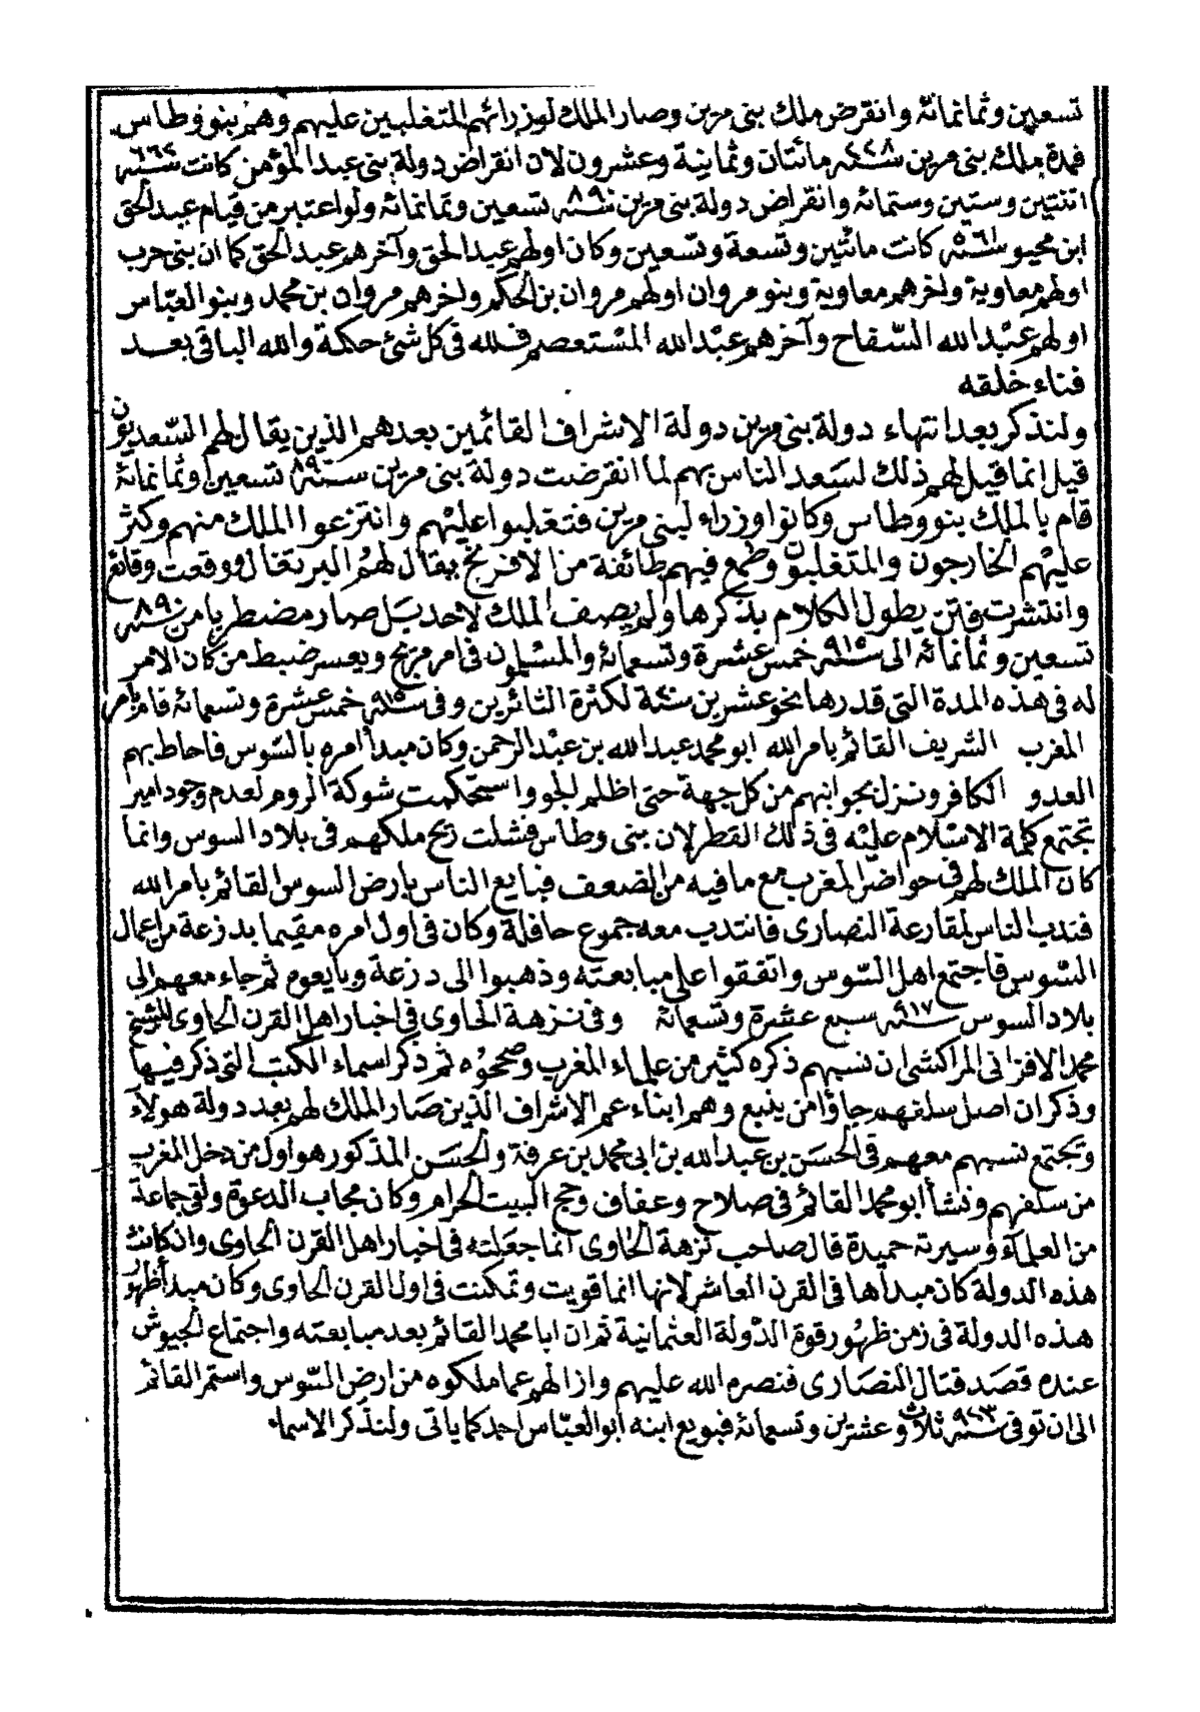 تسعين وثمانمائة وانقرض ملك بنى مرين وصار الملك لوزرائهم المتغلبين عليهم وهم بنو وطاس
فمدة ملك بنى مرين سنة ٢٢٨ مائتان وثمانية وعشرون لان انقراض دولة بنى عبد المؤمن كانت سنة ٦٦٢
اثنتين وستين وستمائة وانقراض دولة بنى مرين سنة ٨٩٠ تسعين وثمانمائة ولو اعتبر من قيام عبد الحق
ابن محيو سنة ٥٦١ كانت مائتين وتسعة وتسعين وكان اولهم عبد الحق وآخرهم عبد الحق كما ان بنى حرب
اولهم معاوية واخرهم معاوية وبنو مروان اولهم مروان بن الحكم واخرهم مروان بن محمد وبنو العباس
اولهم عبد الله السفاح وآخرهم عبد الله المستعصم فلله فى كل شئ حكمة والله الباقى بعد
فناء خلقه
ولنذكر بعد انتهاء دولة بنى مرين دولة الاشراف القائمين بعدهم الذين يقال لهم السعديون
قيل انما قيل لهم ذلك لسعد الناس بهم لما انقرضت دولة بنى مرين سنة ٨٩٠ تسعين وثمانمائة
قام بالملك بنو وطاس وكانوا وزراء لبنى مرين فتغلبوا عليهم وانتزعوا الملك منهم وكثر
عليهم الخارجون والمتغلبون وطمع فيهم طائفة من الافرنج يقال لهم البرتغال ووقعت وقائع
وانتشرت فتن يطول الكلام بذكرها ولم يصف الملك لاحد بل صار مضطربا من سنة ٨٩٠
تسعين وثمانمائة الى سنة ٩١٥ خمس عشرة وتسعمائة والمسلمون فى امر مريج ويعسر ضبط من كان الامر
له فى هذه المدة التى قدرها نحو عشرين سنة لكثرة الثائرين وفى سنة ٩١٥ خمس عشرة وتسعمائة قام بأمر
المغرب الشريف القائم بامر الله ابو محمد عبد الله بن عبد الرحمن وكان مبدأ امره بالسوس فاحاط بهم
العدو الكافر ونزل بجوانبهم من كل جهة حتى اظلم الجو واستحكمت شوكة الروم لعدم وجود امير
تجتمع كلمة الاسلام عليه فى ذلك القطر لان بنى وطاس فشلت ريح ملكهم فى بلاد السوس وانما
كان الملك لهم فى حواضر المغرب مع ما فيه من الضعف فبايع الناس بارض السوس القائم بامر الله
فندب الناس لمقارعة النصارى فانتدب معه جموع حافلة وكان فى اول امره مقيما بدرعة من اعمال
السوس فاجتمع اهل السوس واتفقوا على مبايعته وذهبوا الى درعة وبايعوه ثم جاء معهم الى
بلاد السوس سنة ٩١٧ سبع عشرة وتسعمائة وفى نزهة الحاوى فى اخبار اهل القرن الحاوى للشيخ
محمد الافرانى المراكشى ان نسبهم ذكره كثير من علماء المغرب وصححوه ثم ذكر اسماء الكتب التى ذكر فيها
وذكر ان اصل سلفهم جاؤا من ينبع وهم ابناء عم الاشراف الذين صار الملك لهم بعد دولة هولاء
وتجتمع نسبهم معهم فى الحسن بن عبد الله بن ابى محمد بن عرفة والحسن المذكور هو اول من دخل المغرب
من سلفهم ونشأ ابو محمد القائم فى صلاح وعفاف وحج البيت الحرام وكان مجاب الدعوة ولقى جماعة
من العلماء وسيرته حميدة قال صاحب نزهة الحاوى انما جعلته فى اخبار اهل القرن الحاوى وان كانت
هذه الدولة كان مبدأها فى القرن العاشر لانها انما قويت وتمكنت فى اول القرن الحاوى وكان مبدأ ظهور
هذه الدولة فى زمن ظهور قوة الدولة العثمانية ثم ان ابا محمد القائم بعد مبايعته واجتماع الجيوش
عنده قصد قتال النصارى فنصره الله عليهم وازالهم عما ملكوه من ارض السوس واستمر القائم
الى ان توفى سنة ٩٢٣ ثلاث وعشرين وتسعمائة فبويع ابنه ابو العباس احمد كما ياتى ولنذكر الاسماء